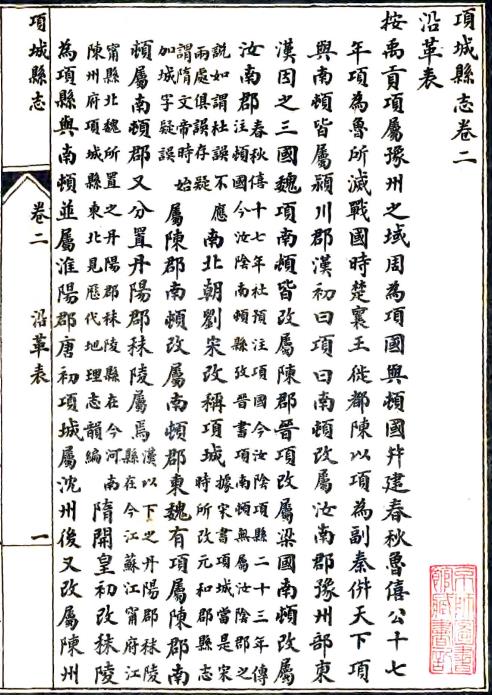 項城縣志卷二
沿革表
按禹貢項屬豫州之域周為項國與頓國并建春秋魯僖公十七
年項為魯所滅戰國時楚襄王徙都陳以項為副秦併天下項
與南頓皆屬潁川郡漢初曰項曰南頓改屬汝南郡豫州部東
漢因之三國魏項南頓皆改屬陳郡晉項改屬梁國南頓改屬
汝南郡春秋僖十七年杜預注項國今汝陰項縣二十三年傳注頓國今汝陰南頓縣攷晉書項南頓無屬汝陰郡之
說如謂杜誤不應兩處俱誤存疑南北朝劉宋改稱項城據宋書項城當是宋時所改元和郡縣志
謂隋文帝時始加城字疑誤屬陳郡南頓改屬南頓郡東魏有項屬陳郡南
頓屬南頓郡又分置丹陽郡秣陵屬焉漢以下之丹陽郡秣陵縣在今江蘇江甯府江
甯縣北魏所置之丹陽郡秣陵縣在今河南陳州府項城縣東北見歷代地理志韻編隋開皇初改秣陵
為項縣與南頓並屬淮陽郡唐初項城屬沈州後又改屬陳州
項城縣志 卷二 沿革表 一
京師圖書館藏書記